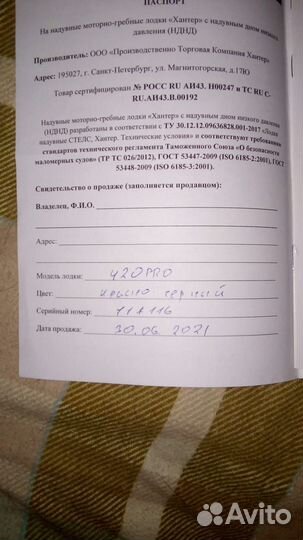 ПАСПОРТ
На надувные моторно-гребные лодки «Хантер» с надувным дном низкого
давления (НДНД)
Производитель: ООО «Производственно Торговая Компания Хантер»
Адрес: 195027, г. Санкт-Петербург, ул. Магнитогорская, д.17Ю
Товар сертифицирован № РОСС RU АИ43. Н00247 и ТС RU C-
RU.АИ43.В.00192
Надувные моторно-гребные лодки «Хантер» с надувным дном низкого давления
(НДНД) разработаны в соответствии с ТУ 30.12.12.09636828.001-2017 «Лодки
надувные СТЕЛС, Хантер. Технические условия» и соответствуют требованиям
стандартов технического регламента Таможенного Союза «О безопасности
маломерных судов» (ТР ТС 026/2012), ГОСТ 53447-2009 (ISO 6185-2:2001), ГОСТ
53448-2009 (ISO 6185-3:2001).
Свидетельство о продаже (заполняется продавцом):
Владелец, Ф.И.О.
Адрес:
Модель лодки: 420PRO
Цвет: красно черный
Серийный номер:
Дата продажи: 30.06 2021
Avito